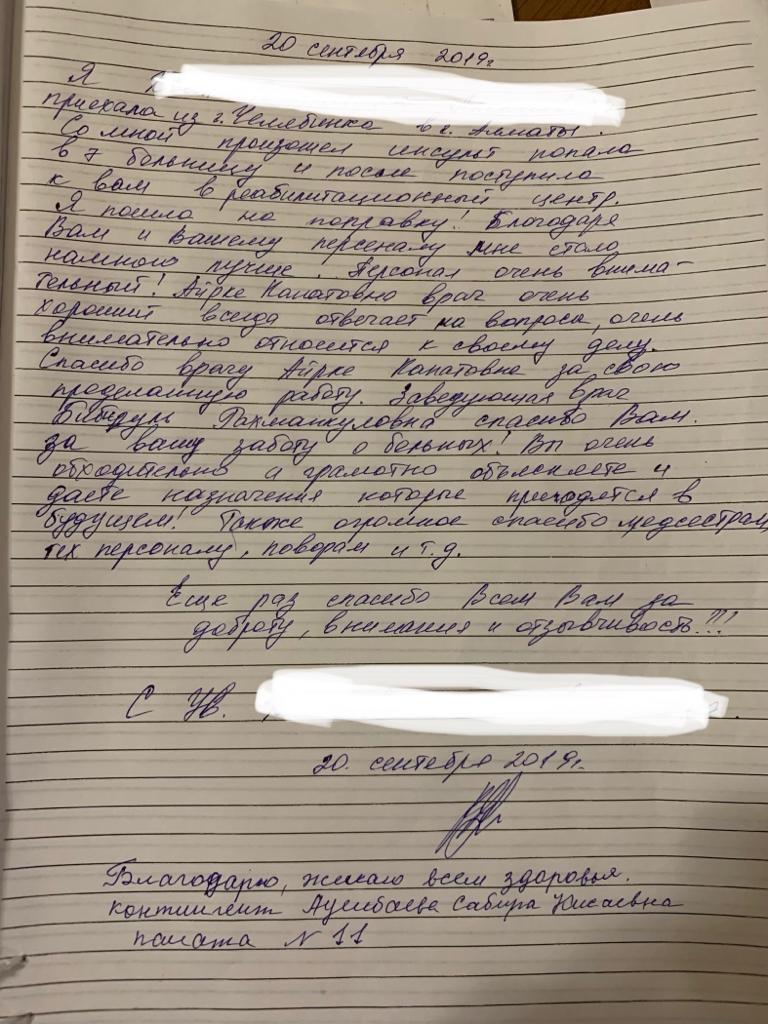 20 сентября 2019г.
Я
приехала из г. Челябинка в г. Алматы.
Со мной произошел инсульт попала
в 7 больницу и после поступила
к вам в реабилитационный центр.
Я пошла на поправку! Благодаря
Вам и Вашему персеналу мне стало
намного лучше. Персонал очень внима-
тельный! Айрке Канатовна врач очень
хороший всегда отвечает на вопросы, очень
внимательно относится к своему делу.
Спасибо врачу Айрке Канатовне за свою
проделанную работу. Заведующая врач
Бибигуль Рахманкуловна спасибо Вам.
за вашу заботу о больных! Вы очень
обходительно и грамотно объясняете и
даете назначения которые пригодятся в
будущем! Также огромное спасибо медсестрам,
тех персоналу, поворам и т.д.
Еще раз спасибо Всем Вам за
доброту, внимания и отзывчивость!!!
С Ув.
20. сентября 2019г.
Благодарю, желаю всем здоровья.
контингент Сабира
палата № 11